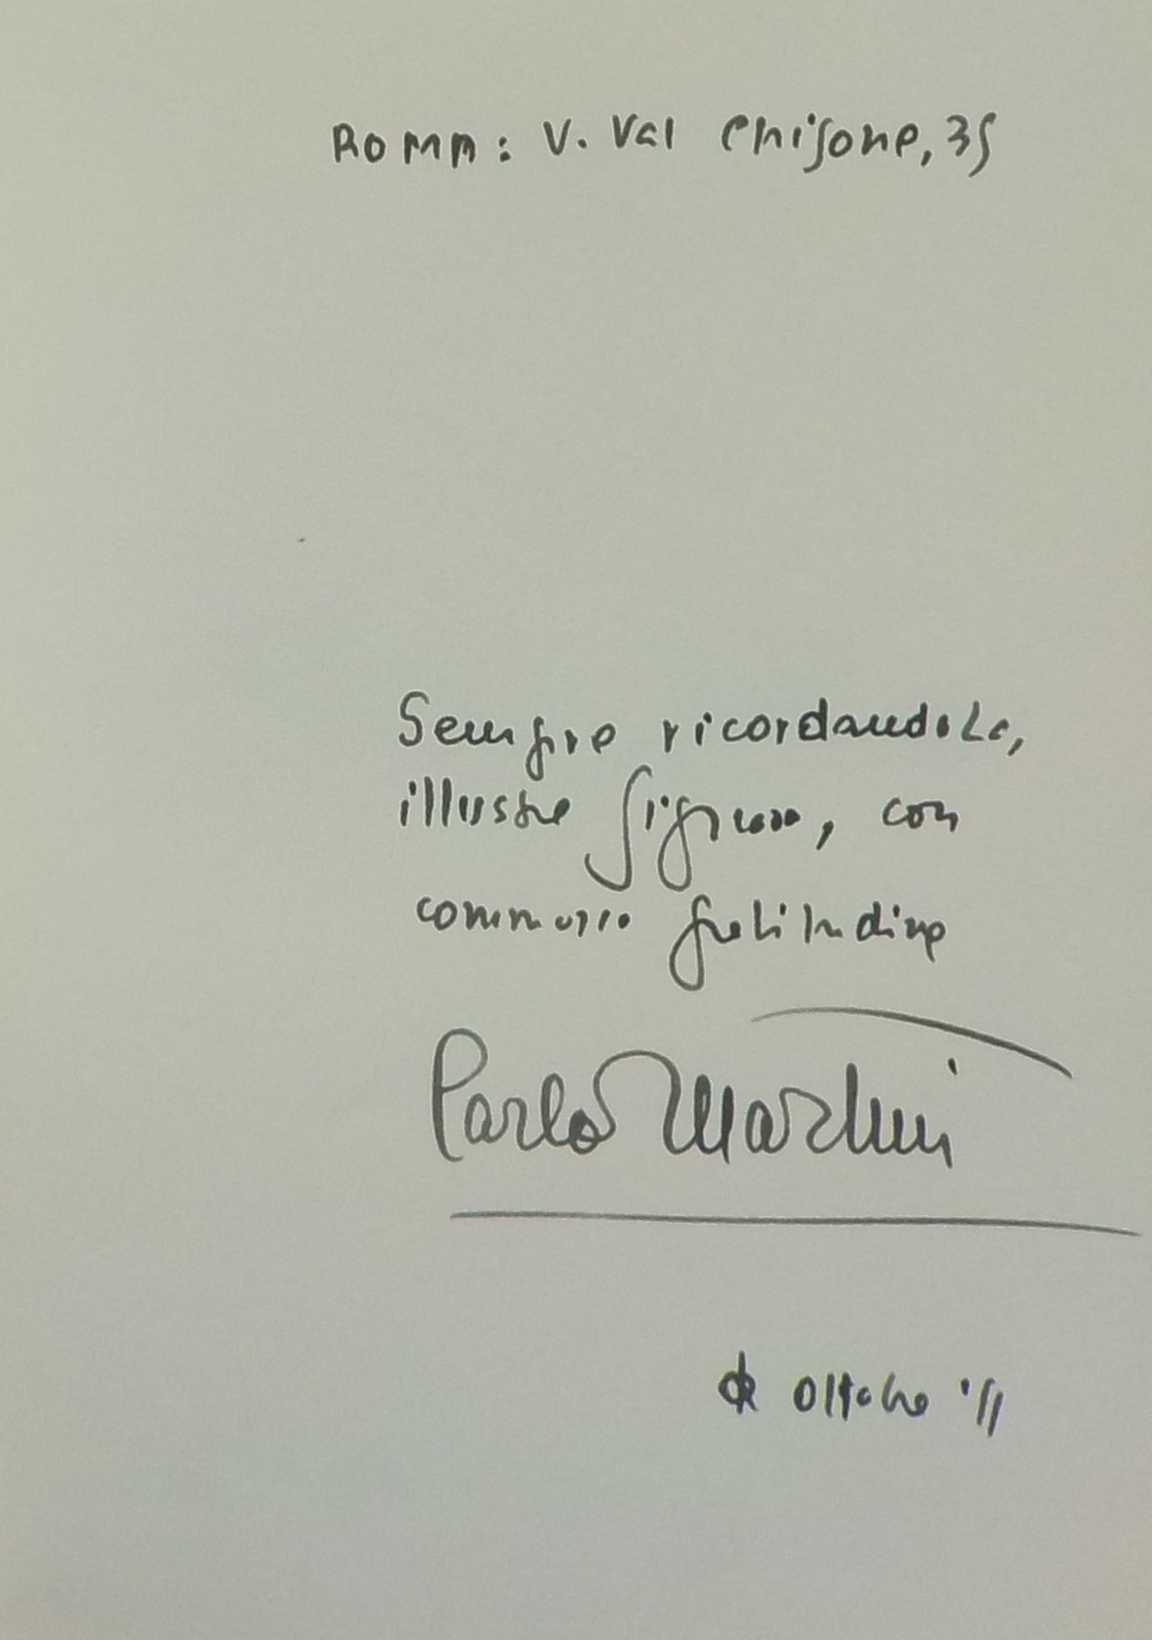 ROMA: V. Val Chisone, 35
Sempre ricordandola,
illustre Signora, con
commossa gratitudine
Carlo Martini
Ottobre